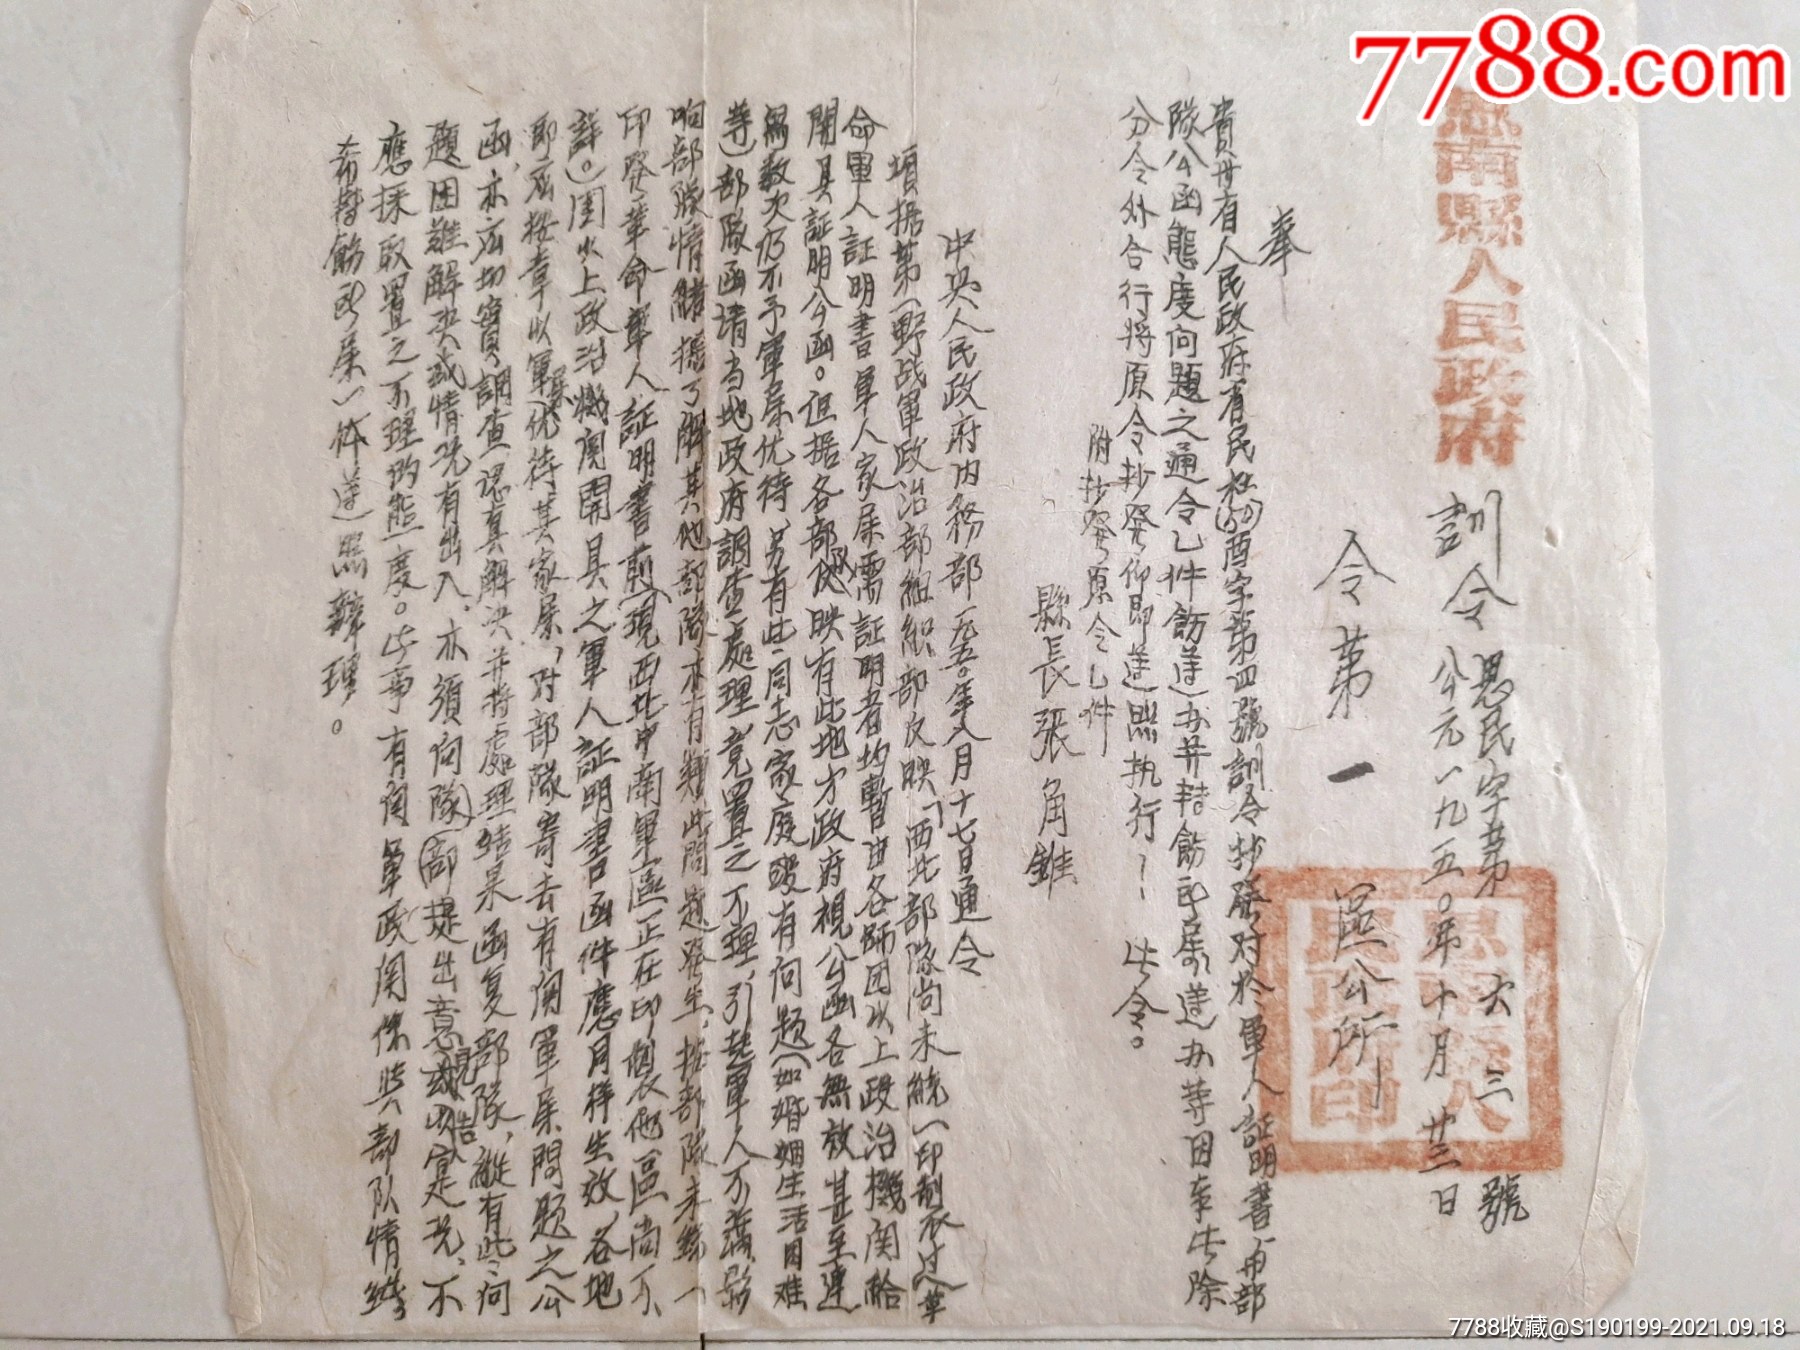 7788.com
思南縣人民政府 訓令 思民字第六三號
公元一九五〇年十月廿三日
令第一區公所
奉
貴州省人民政府省民社(50)酉字第四號訓令抄發对於軍人証明書与部
隊公函態度问題之通令乙件飭遵办并轉飭所屬遵办等因奉此除
分令外合行將原令抄發仰即遵照执行！此令。
附抄發原令乙件
縣長張角錐
中央人民政府内務部一九五〇年八月十七日通令
項据第一野战軍政治部組織部反映「西北部隊尚未統一印制過革
命軍人証明書軍人家屬需証明者均暫由各師团以上政治機関給
開具証明公函。但据各部反映有些地方政府視公函各無效甚至連
寫数次仍不予軍屬优待，另有些同志家庭發有问題(如婚姻生活困难
等)部隊函请当地政府調查處理，竟置之不理，引起軍人不滿，影
响部隊情緒据了解其他部隊亦有類此問題發生，按部隊未統一
印發革命軍人証明書前(現西北中南軍區正在印製其他區尚不
詳。)团以上政治機関開具之軍人証明書函件應同样生效，各地
即應按章以軍屬优待其家屬，对部隊寄去有関軍屬問題之公
函，亦应切實調查認真解决并将處理結果函复部隊，縱有些问
題困難解决或情况有出入，亦須向部隊提出意見或告以实况，不
應採取置之不理的態度。此事有関軍政関係與部队情緒。
希轉飭所屬一体遵照辦理。
思南縣人民政府印
7788收藏@S190199-2021.09.18